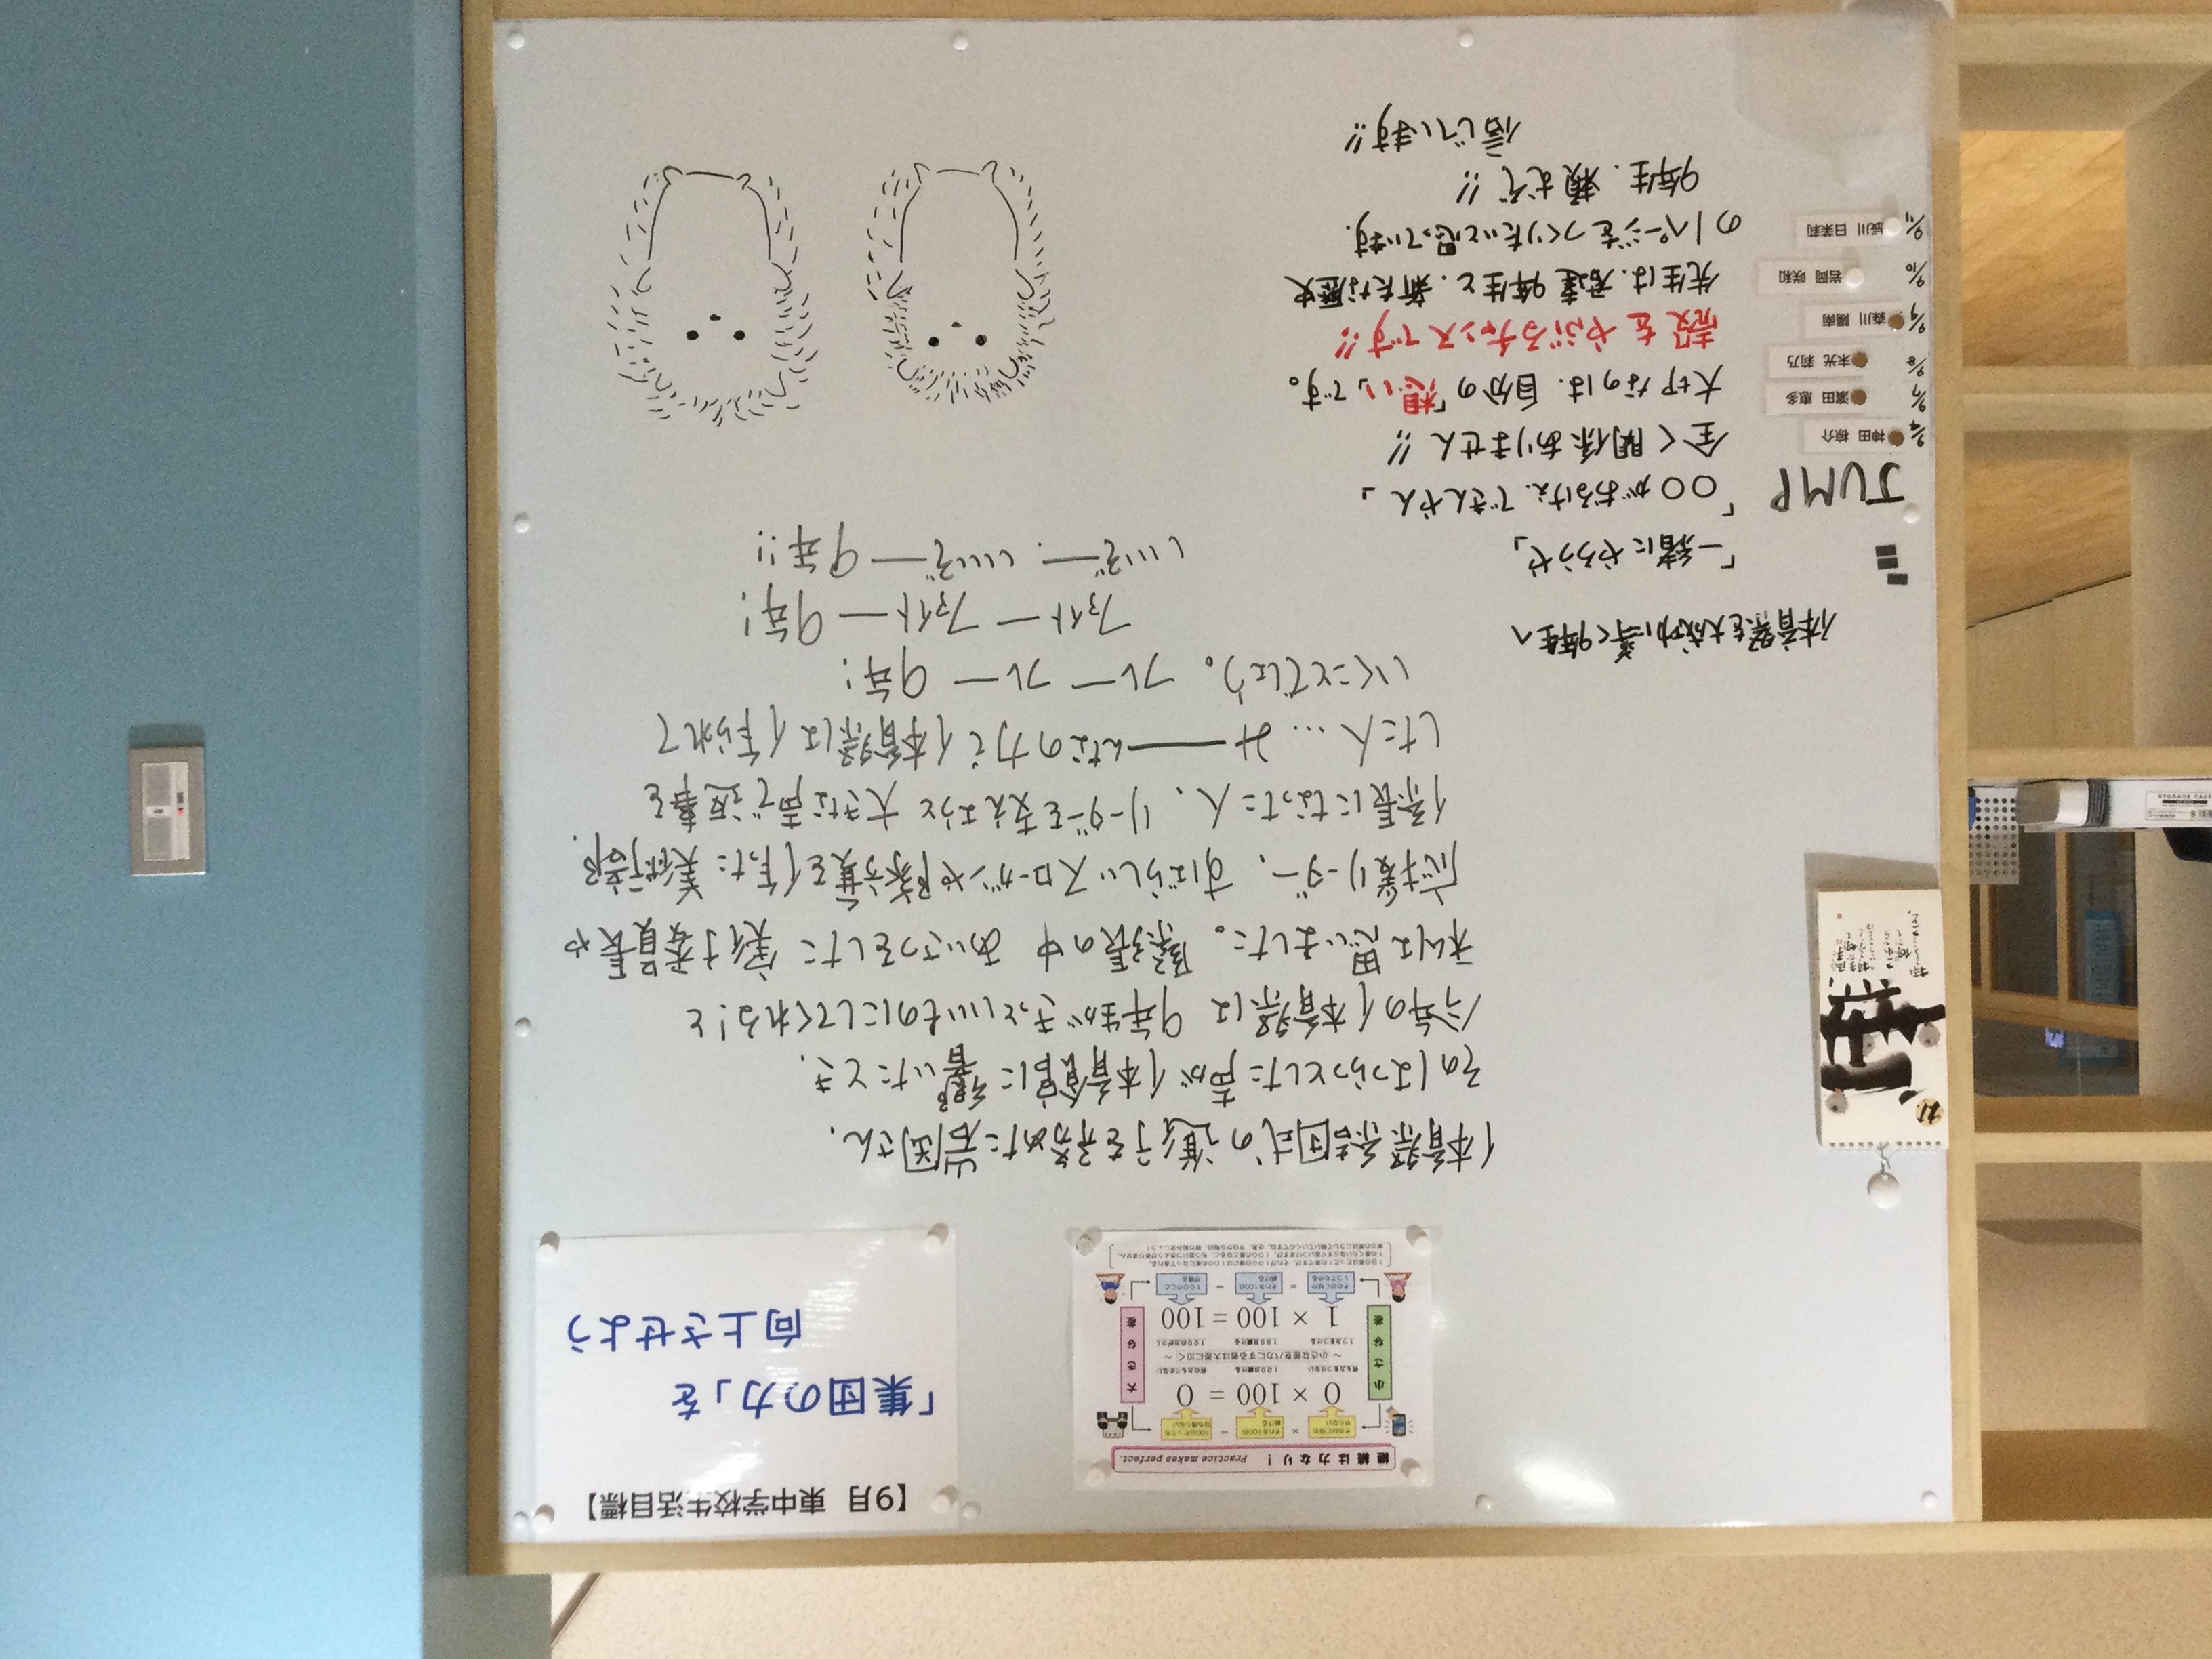 【9月 東中学校生活目標】
「集団の力」を
向上させよう
継続は力なり! Practice makes perfect.
0 × 100 = 0
～小さな差をバカにする者は大差に泣く～
1 × 100 = 100
小さな差
大きな差
体育祭結団式の進行を務めた岩岡さん。
そのはつらつとした声が体育館に響いたとき、
今年の体育祭は 9年生がきっといいものにしてくれる!と
私は思いました。緊張の中 あいさつをした 実行委員長や
応援リーダー、すばらしいスローガンや隊旗を作った美術部、
係長になった人、リーダーを支えようと 大きな声で返事を
した人… み——んなの力で体育祭は作られて
いくことでしょう。フレー フレー 9年!
ファイトー ファイトー 9年!
いいぞー. いいぞー 9年!!
体育祭を大成功に導く9年生へ
「一緒にやろうぜ」
「〇〇がおるけぇ、できんやん」
全く関係ありません!!
大切なのは、自分の「想い」です。
殻をやぶるチャンスです!!
先生は、君達9年生と、新たな歴史
の1ページをつくりたいと思っています。
9年生、頼むぞ!!
信じています!!
JUMP
9/4 神田 椋介
9/7 濵田 恵多
9/8 末光 莉乃
9/9 森川 陽南
9/10 岩岡 咲和
9/11 辰川 日茉莉
21